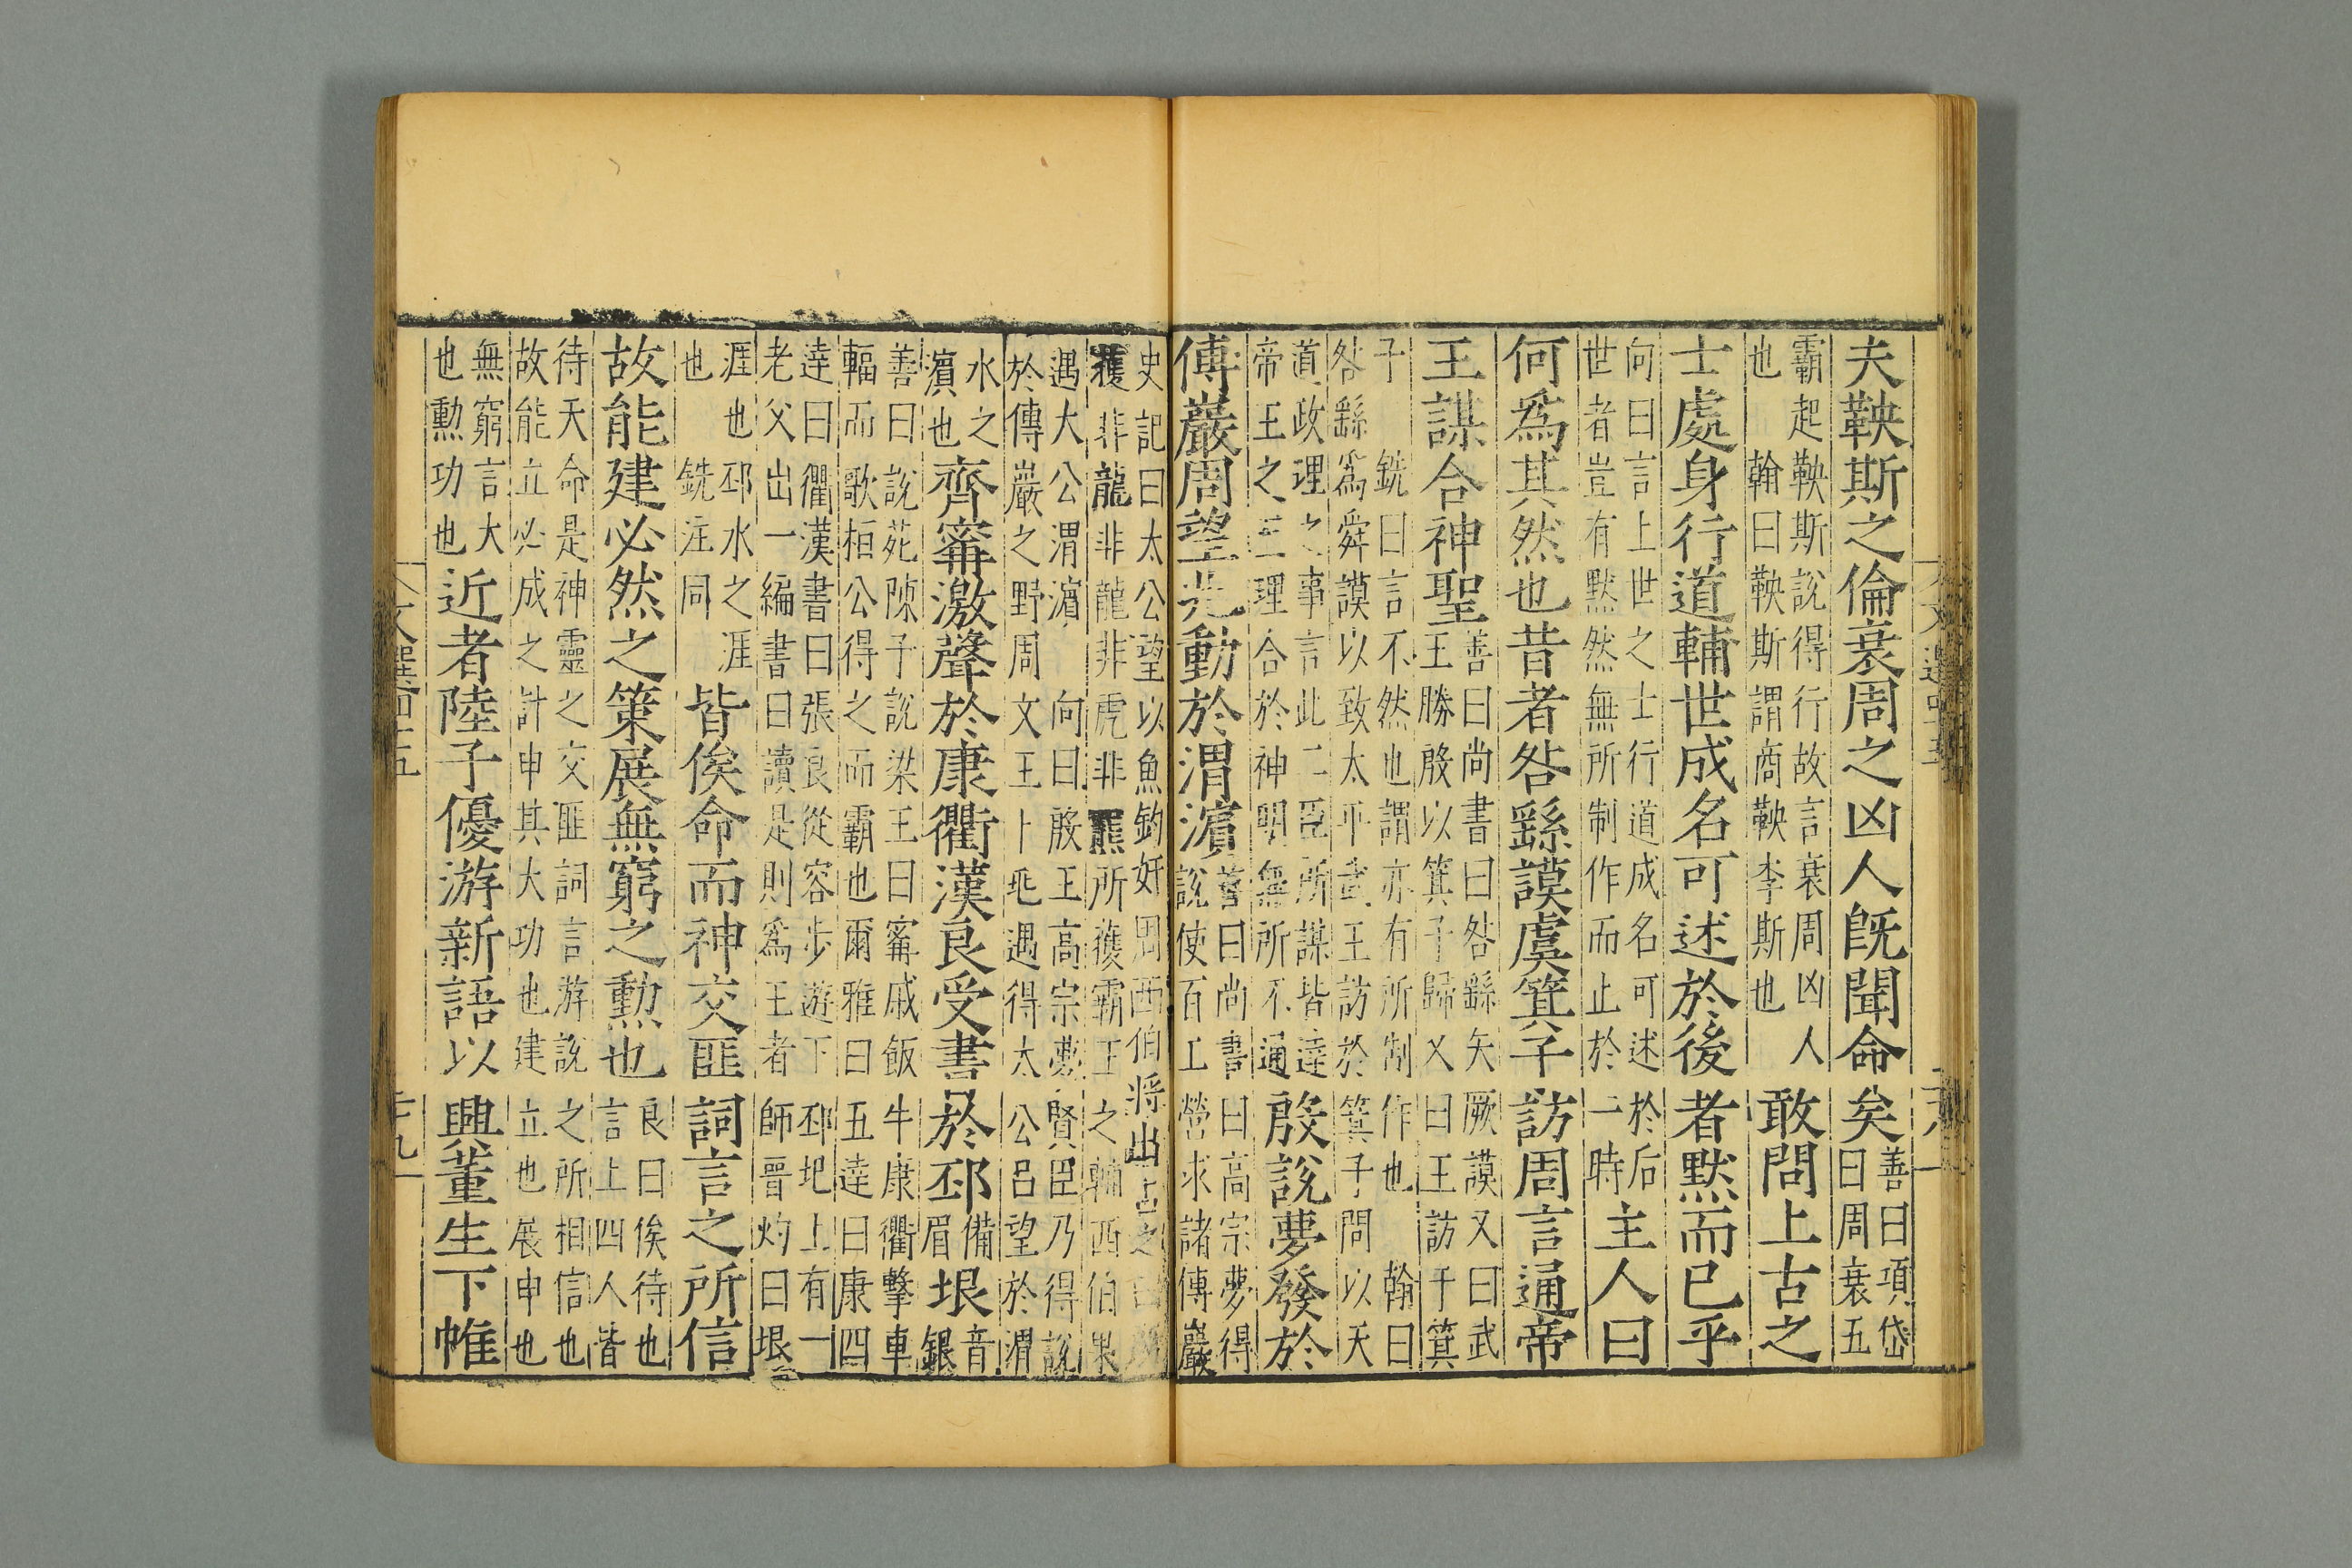 夫鞅斯之倫衰周之凶人旣聞命矣善曰項岱
曰周衰五
霸起鞅斯說得行故言衰周凶人
也 翰曰鞅斯謂商鞅李斯也
敢問上古之
士處身行道輔世成名可述於後者默而已乎
向曰言上世之士行道成名可述於后
世者豈有默然無所制作而止於一時
主人曰
何爲其然也昔者咎繇謨虞箕子訪周言通帝
王謀合神聖
善曰尚書曰咎繇矢厥謨又曰武
王勝殷以箕子歸又曰王訪于箕
子 銑曰言不然也謂亦有所制作也 翰曰
咎繇爲舜謨以致太平武王訪於箕子問以天
道政理之事言此二臣所謀皆達
帝王之三理合於神明無所不通
殷說夢發於
傅巖周望兆動於渭濵
善曰尚書曰高宗夢得
說使百工營求諸傅巖
文選四十五
史記曰太公望以魚釣奸周西伯將出占之曰
獲非龍非龍非虎非羆所獲霸王之輔西伯果
遇大公渭濵 向曰殷王高宗夢賢臣乃得說
於傅巖之野周文王卜兆遇得太公呂望於渭
水之
濵也
齊寗激聲於康衢漢良受書於邳
備
眉
垠
音
銀
善曰說苑陳子說梁王曰寗戚飯牛康衢擊車
輻而歌桓公得之而霸也爾雅曰五達曰康四
達曰衢漢書曰張良從容步遊下邳圯上有一
老父出一編書曰讀是則爲王者師晉灼曰垠
涯也邳水之涯
也 銑注同
皆俟命而神交匪詞言之所信
故能建必然之策展無窮之勳也
良曰俟待也
言上四人皆
待天命是神靈之交匪詞言游說之所相信也
故能立必成之計申其大功也建立也展申也
無窮言大
也勳功也
近者陸子優游新語以興董生下帷